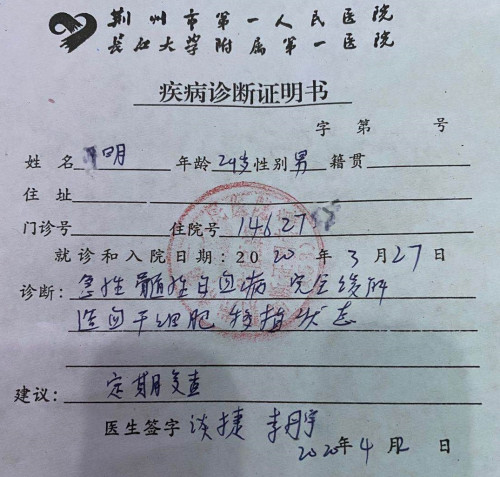 荆州市第一人民医院
长江大学附属第一医院
疾病诊断证明书
字 第 号
姓名 明 年龄 24岁 性别 男 籍贯
住址
门诊号 住院号 14627
就诊和入院日期：2020年3月27日
诊断：急性髓性白血病 完全缓解
造血干细胞移植状态
建议：定期复查
医生签字 谈捷 李丹宇
2020年4月2日